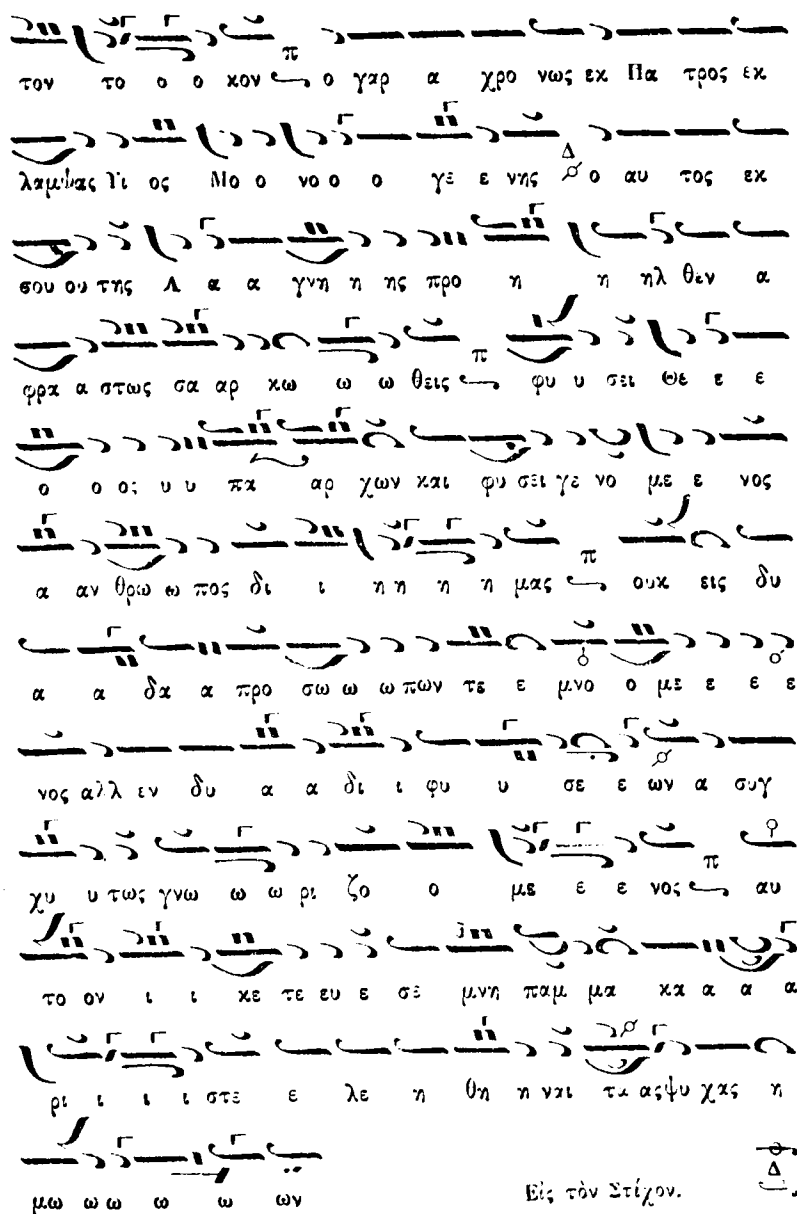 τον το ο ο κον π ο γαρ α χρο νως εκ Πα τρος εκ
λαμψας Υι ος Μο ο νο ο ο γε ε νης Δ ο αυ τος εκ
σου ου της Α α α γνη η ης προ η η ηλ θεν α
φρα α στως σα αρ κω ω ω θεις π φυ υ σει Θε ε ε
ο ο ος υ υ πα αρ χων και φυ σει γε νο με ε νος
α αν θρω ω πος δι ι η η η η μας π ουκ εις δυ
α α δα α προ σω ω ω πων τε ε μνο ο με ε ε ε
νος αλλ εν δυ α α δι ι φυ υ σε ε ων α συγ
χυ υ τως γνω ω ω ρι ζο ο με ε ε νος π αυ
το ον ι ι κε τε ευ ε σε μνη παμ μα κα α α α
ρι ι ι ι στε ε λε η θη η ναι τα ας ψυ χας η
μω ω ω ω ω ων Εἰς τὸν Στίχον. Δ